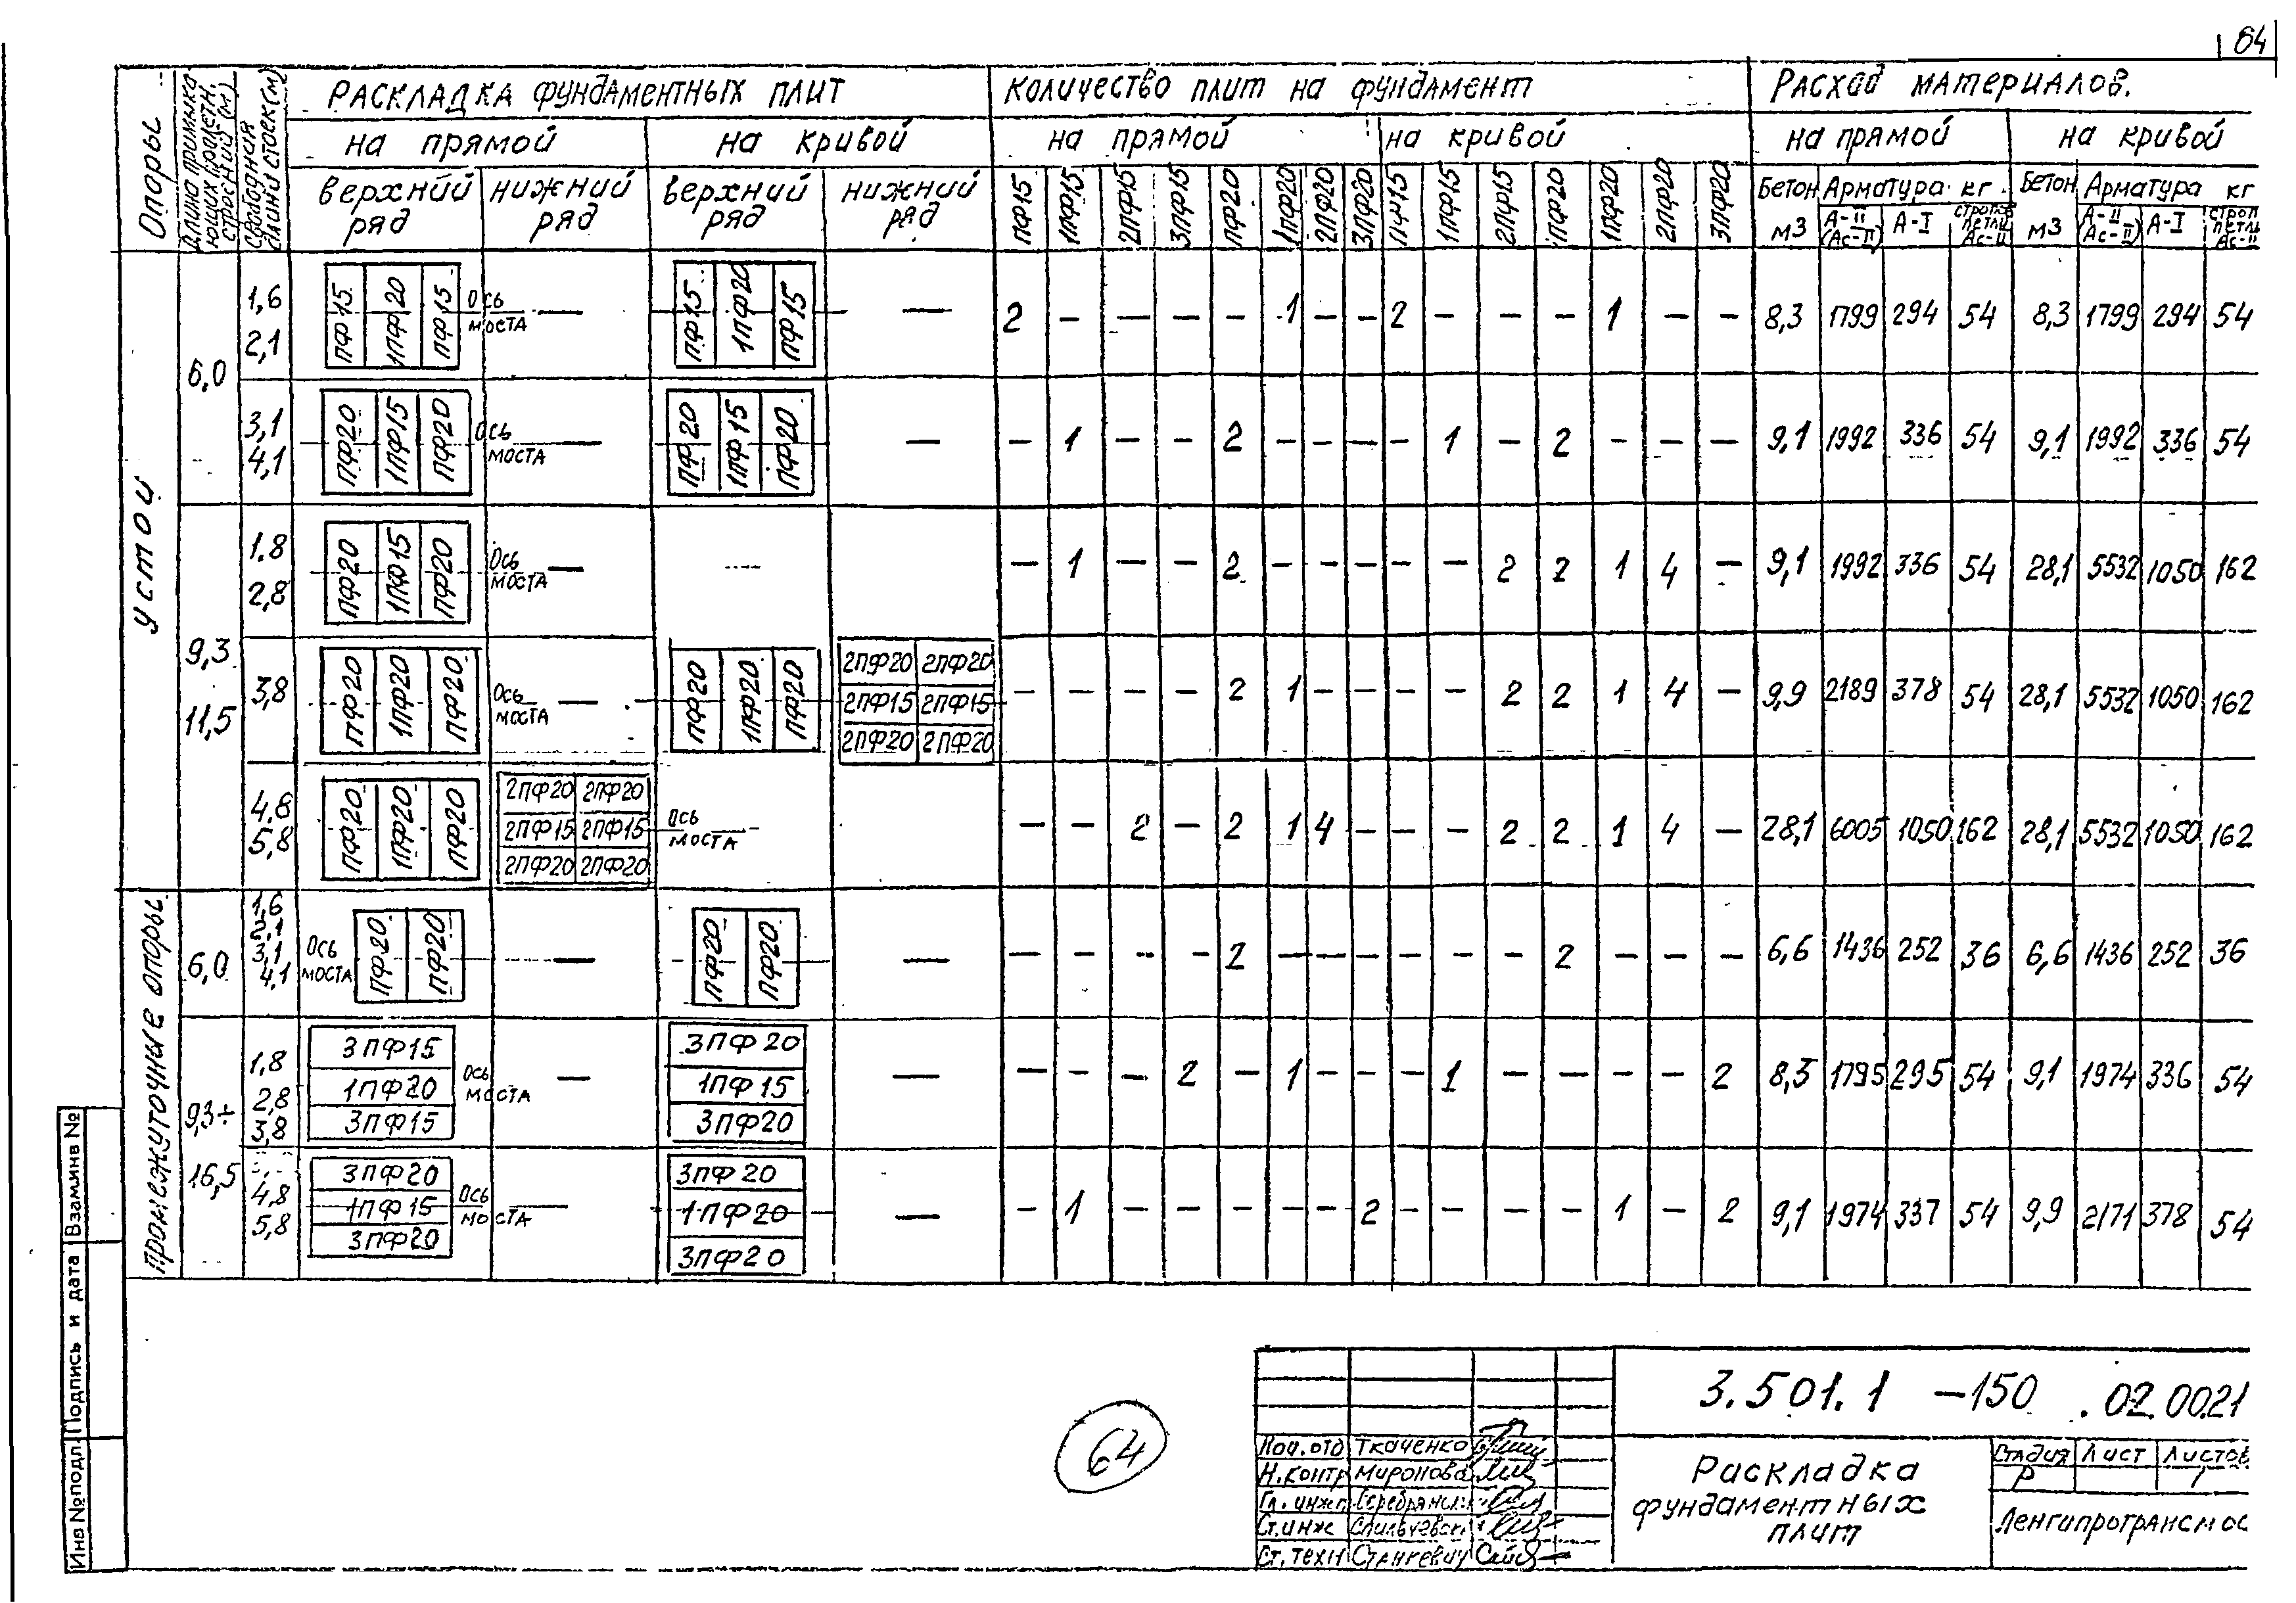 64
Опоры
Длина примыка-
ющих пролетн.
строений (м)
Свободная
длина стоек (м)
Раскладка фундаментных плит
Количество плит на фундамент
Расход материалов.
на прямой
на кривой
на прямой
на кривой
на прямой
на кривой
верхний ряд
нижний ряд
верхний ряд
нижний ряд
ПФ15 1ПФ15 2ПФ15 3ПФ15 ПФ20 1ПФ20 2ПФ20 3ПФ20
ПФ15 1ПФ15 2ПФ15 ПФ20 1ПФ20 2ПФ20 3ПФ20
Бетон м3 Арматура кг. А-II (Ас-II) А-I строп. петли Ас-II
Бетон м3 Арматура кг А-II (Ас-II) А-I строп петли Ас-II
Устои
6,0
1,6 2,1
ПФ15 1ПФ20 ПФ15 Ось моста —
ПФ15 1ПФ20 ПФ15 —
2 — — — — 1 — — 2 — — — 1 — — 8,3 1799 294 54 8,3 1799 294 54
3,1 4,1
ПФ20 1ПФ15 ПФ20 Ось моста —
ПФ20 1ПФ15 ПФ20 —
— 1 — — 2 — — — — 1 — 2 — — — 9,1 1992 336 54 9,1 1992 336 54
9,3 11,5
1,8 2,8
ПФ20 1ПФ15 ПФ20 Ось моста —
— 1 — — 2 — — — — — 2 2 1 4 — 9,1 1992 336 54 28,1 5532 1050 162
3,8
ПФ20 1ПФ20 ПФ20 Ось моста —
ПФ20 1ПФ20 ПФ20
2ПФ20 2ПФ20
2ПФ15 2ПФ15
2ПФ20 2ПФ20
— — — — 2 1 — — — — 2 2 1 4 — 9,9 2189 378 54 28,1 5532 1050 162
4,8 5,8
ПФ20 1ПФ20 ПФ20
2ПФ20 2ПФ20
2ПФ15 2ПФ15
2ПФ20 2ПФ20
Ось моста
— — 2 — 2 1 4 — — — 2 2 1 4 — 28,1 6005 1050 162 28,1 5532 1050 162
Промежуточные опоры
6,0
1,6 2,1 3,1 4,1
Ось моста ПФ20 ПФ20 —
ПФ20 ПФ20 —
— — — — 2 — — — — — — 2 — — — 6,6 1436 252 36 6,6 1436 252 36
9,3÷ 16,5
1,8 2,8 3,8
3ПФ15
1ПФ20
3ПФ15
Ось моста —
3ПФ20
1ПФ15
3ПФ20
—
— — — 2 — 1 — — — 1 — — — — 2 8,3 1795 295 54 9,1 1974 336 54
4,8 5,8
3ПФ20
1ПФ15
3ПФ20
Ось моста —
3ПФ20
1ПФ20
3ПФ20
—
— 1 — — — — — 2 — — — — 1 — 2 9,1 1974 337 54 9,9 2171 378 54
Инв №подл. Подпись и дата Взам инв №
64
3.501.1 -150 .02.0021
Нач. отд Ткаченко
Н.контр Миронова
Гл. инж п
Ст.инж
Ст. техн Станкевич
Раскладка
фундаментных
плит
Стадия Лист Листов
Р 1
Ленгипротрансмос